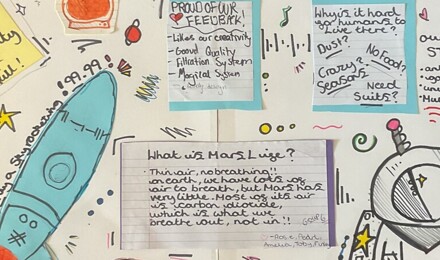 PROUD OF OUR
FEEDBACK!
Likes our creativity
- Good Quality
Filtration System
Magical System
Why is it hard
for humans to
Live there?
Dust?
No Food?
Crazy?
Seasons
Need
Suits?
99.99!
What is Mars Like?
Thin air, no breathing!!
on earth, we have lots of
air to breath, but Mars has
very little. Most of its air
is carbon dioxide,
which is what we
breathe out, not in!!